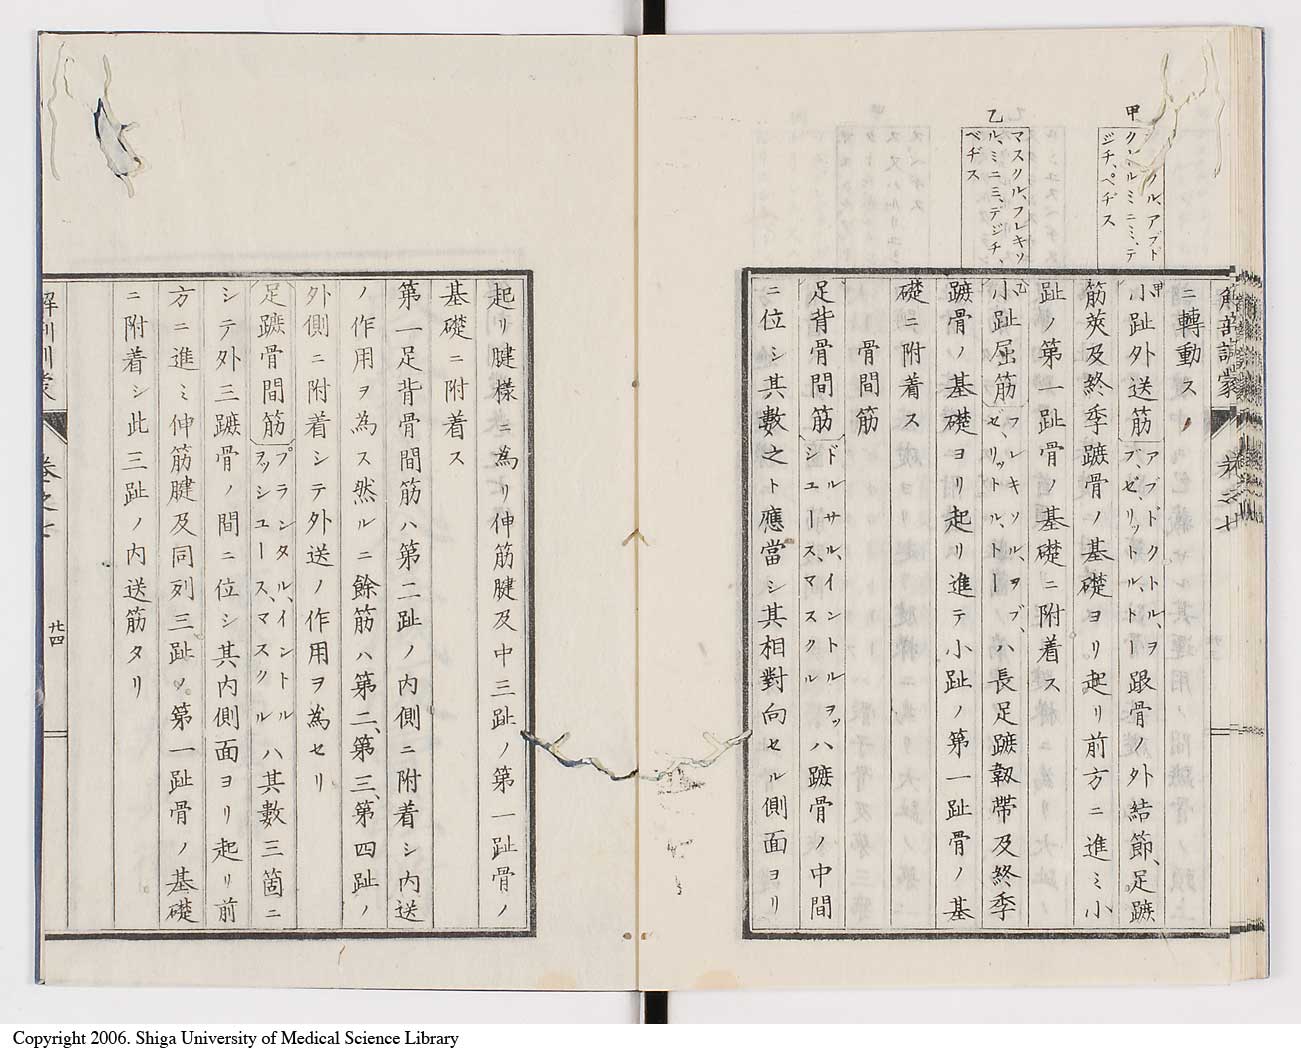 甲
クトル、ミニミ、デ
ジチ、ペヂス
乙
マスクル、フレキソ
ル、ミニミ、デジチ、
ペヂス
解剖訓蒙
卷之七
ニ轉動ス
甲
小趾外送筋アブドクトル、ヲブ、ゼ、リットル、トー跟骨ノ外結節、足蹠
筋莢及終季蹠骨ノ基礎ヨリ起リ前方ニ進ミ小
趾ノ第一趾骨ノ基礎ニ附着ス
乙
小趾屈筋フレキソル、ヲブ、ゼ、リットル、トーハ長足蹠靱帶及終季
蹠骨ノ基礎ヨリ起リ進テ小趾ノ第一趾骨ノ基
礎ニ附着ス
骨間筋
足背骨間筋ドルサル、イントルヲッシユース、マスクルハ蹠骨ノ中間
ニ位シ其數之ト應當シ其相對向セル側面ヨリ
起リ腱樣ニ為リ伸筋腱及中三趾ノ第一趾骨ノ
基礎ニ附着ス
第一足背骨間筋ハ第二趾ノ内側ニ附着シ内送
ノ作用ヲ為ス然ルニ餘筋ハ第二、第三、第四趾ノ
外側ニ附着シテ外送ノ作用ヲ為セリ
足蹠骨間筋プランタル、イントルヲッシユース、マスクルハ其數三箇ニ
シテ外三蹠骨ノ間ニ位シ其内側面ヨリ起リ前
方ニ進ミ伸筋腱及同列三趾ノ第一趾骨ノ基礎
ニ附着シ此三趾ノ内送筋タリ
解剖訓蒙
卷之七
廿四
Copyright 2006. Shiga University of Medical Science Library